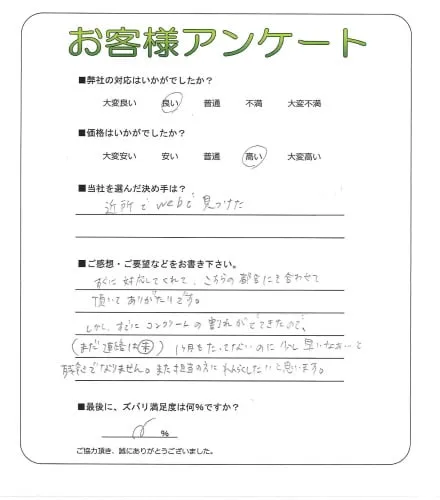 お客様アンケート
■弊社の対応はいかがでしたか？
大変良い 良い 普通 不満 大変不満
■価格はいかがでしたか？
大変安い 安い 普通 高い 大変高い
■当社を選んだ決め手は？
近所で webで 見つけた
■ご感想・ご要望などをお書き下さい。
すぐに 対応してくれて、こちらの都合にも合わせて
頂いて ありがたいです。
しかし、すでに コンクリートの 割れが でてきたので、
(まだ 連絡は 未) 1ヶ月もたってないのに 少し早いなあって
なりません。また担当の方に れんらくしたいと思います。
■最後に、ズバリ満足度は何%ですか？
%
ご協力頂き、誠にありがとうございました。